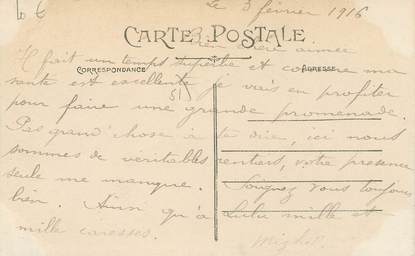 Le 3 février 1916
CARTE POSTALE
Bien chère aimée
CORRESPONDANCE
ADRESSE
Il fait un temps superbe et comme ma
santé est excellente je vais en profiter
pour faire une grande promenade.
Pas grand chose à te dire, ici nous
sommes de véritables rentiers, votre présence
seule me manque. Soignez vous toujours
bien. Ainsi qu'à Lulu mille et
mille caresses.